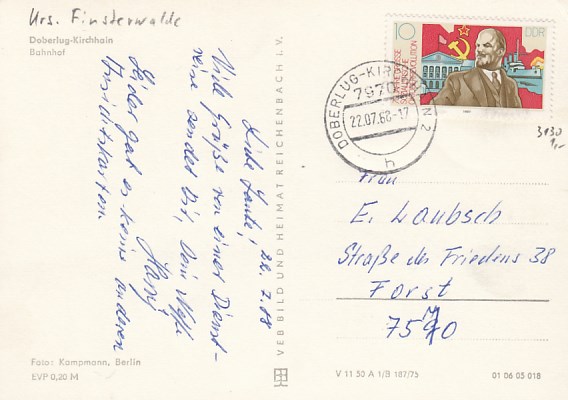 Krs. Finsterwalde
Doberlug-Kirchhain
Bahnhof
Liebe Tante!
22.7.88
Viele Grüße von einer Dienst-
reise sendet Dir, Dein Neffe
Hans
Leider gab es keine anderen
Ansichtskarten.
Foto: Kampmann, Berlin
EVP 0,20 M
VEB BILD UND HEIMAT REICHENBACH i.V.
10
DDR
GROSSE
SOZIALISTISCHE
OKTOBERREVOLUTION
DOBERLUG-KIRCHHAIN 2
7970
22.07.88-17
h
3130
1,-
Frau
E. Laubsch
Straße des Friedens 38
Forst
7570
V 11 50 A 1/B 187/75
01 06 05 018